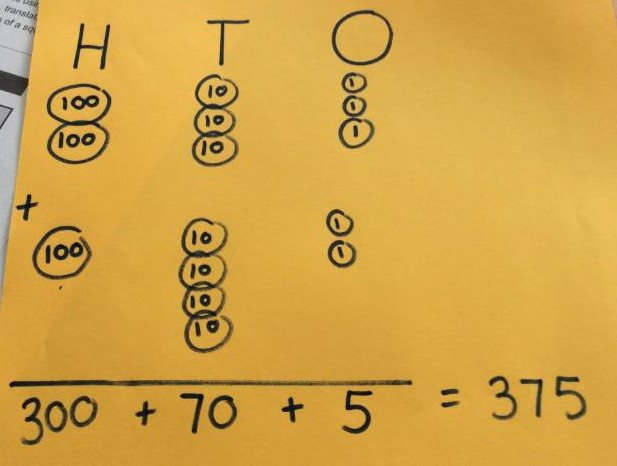 translat
of a squ
H T O
100 10 1
10 1
100 10 1
+
10 1
100 10 1
10
10
300 + 70 + 5 = 375